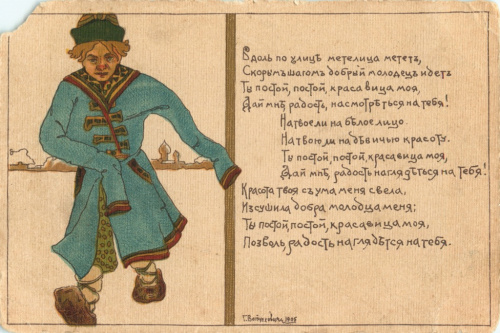 Вдоль по улицѣ метелица мететъ,
Скорымъ шагомъ добрый молодецъ идетъ
Ты постой, постой, красавица моя,
Дай мнѣ, радость, насмотрѣться на тебя!
На твое ли на бѣлое лицо
На твою ли дѣвичью красоту.
Ты постой, постой, красавица моя,
Дай мнѣ, радость наглядѣться на тебя!
Красота твоя съ ума меня свела,
Изсушила добра молодца меня;
Ты постой, постой, красавица моя,
Позволь, радость наглядѣться на тебя.